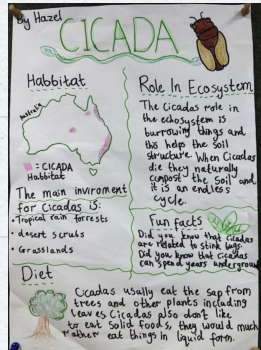 By Hazel
CICADA
Habbitat
Australia
= CICADA
Habbitat
The main inviroment
for Cicadas is:
• Tropical rain forrests
• desert scrubs
• Grasslands
Role In Ecosystem
The Cicadas role in
the echosystem is
burrowing things and
this helps the soil
structure. When Cicadas
die they naturally
compost the soil and
it is an endless
cycle.
Fun facts
Did you know that cicadas
are related to stink bugs
Did you know that cicadas
can spend years underground
Diet
Cicadas usally eat the sap from
trees and other plants including
leaves Cicadas also don't like
to eat solid foods, they would much
rather eat things in liquid form.